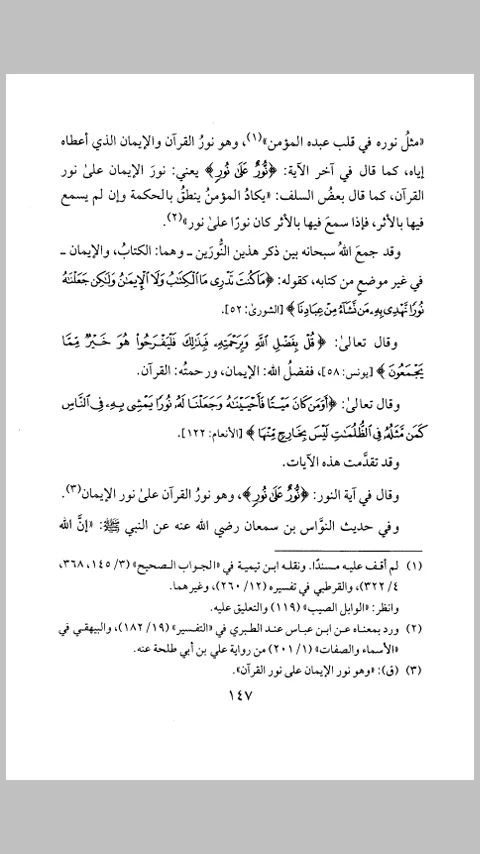 «مثلُ نوره في قلب عبده المؤمن»(١)، وهو نورُ القرآن والإيمان الذي أعطاه
إياه، كما قال في آخر الآية: ﴿نُّورٌ عَلَىٰ نُورٍ﴾ يعني: نورَ الإيمان علىٰ نور
القرآن، كما قال بعضُ السلف: «يكادُ المؤمنُ ينطقُ بالحكمة وإن لم يسمع
فيها بالأثر، فإذا سمعَ فيها بالأثر كان نورًا علىٰ نور»(٢).
وقد جمعَ اللهُ سبحانه بين ذكر هذين النُّورَين ــ وهما: الكتابُ، والإيمان ــ
في غير موضعٍ من كتابه، كقوله: ﴿مَا كُنتَ تَدْرِى مَا ٱلْكِتَٰبُ وَلَا ٱلْإِيمَٰنُ وَلَٰكِن جَعَلْنَٰهُ
نُورًا نَّهْدِى بِهِۦ مَن نَّشَآءُ مِنْ عِبَادِنَا﴾ [الشورىٰ: ٥٢].
وقال تعالىٰ: ﴿قُلْ بِفَضْلِ ٱللَّهِ وَبِرَحْمَتِهِۦ فَبِذَٰلِكَ فَلْيَفْرَحُوا۟ هُوَ خَيْرٌ مِّمَّا
يَجْمَعُونَ﴾ [يونس: ٥٨]، ففضلُ الله: الإيمان، ورحمتُه: القرآن.
وقال تعالىٰ: ﴿أَوَمَن كَانَ مَيْتًا فَأَحْيَيْنَٰهُ وَجَعَلْنَا لَهُۥ نُورًا يَمْشِى بِهِۦ فِى ٱلنَّاسِ
كَمَن مَّثَلُهُۥ فِى ٱلظُّلُمَٰتِ لَيْسَ بِخَارِجٍ مِّنْهَا﴾ [الأنعام: ١٢٢].
وقد تقدَّمت هذه الآيات.
وقال في آية النور: ﴿نُّورٌ عَلَىٰ نُورٍ﴾، وهو نورُ القرآن علىٰ نور الإيمان(٣).
وفي حديث النوَّاس بن سمعان رضي الله عنه عن النبي ﷺ: «إنَّ الله
(١) لم أقف عليه مسندًا. ونقله ابن تيمية في «الجواب الصحيح» (٣/ ١٤٥، ٣٦٨،
٤/ ٣٢٢)، والقرطبي في تفسيره (١٢/ ٢٦٠)، وغيرهما.
وانظر: «الوابل الصيب» (١١٩) والتعليق عليه.
(٢) ورد بمعناه عن ابن عباس عند الطبري في «التفسير» (١٩/ ١٨٢)، والبيهقي في
«الأسماء والصفات» (١/ ٢٠١) من رواية علي بن أبي طلحة عنه.
(٣) (ق): «وهو نور الإيمان علىٰ نور القرآن».
١٤٧